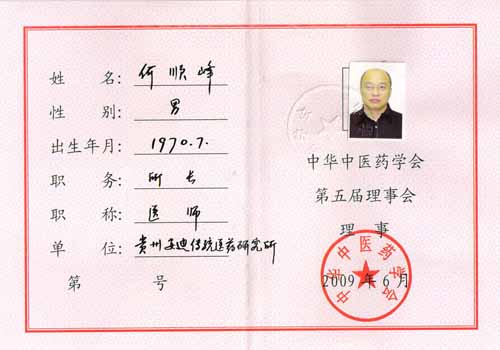 姓 名: 何顺峰
性 别: 男
出生年月: 1970.7.
职 务: 所长
职 称: 医师
单 位: 贵州 迪传统医药研究所
第 号
中华中医药学会
第五届理事会
理 事
2009 年 6 月
中华中医药学会